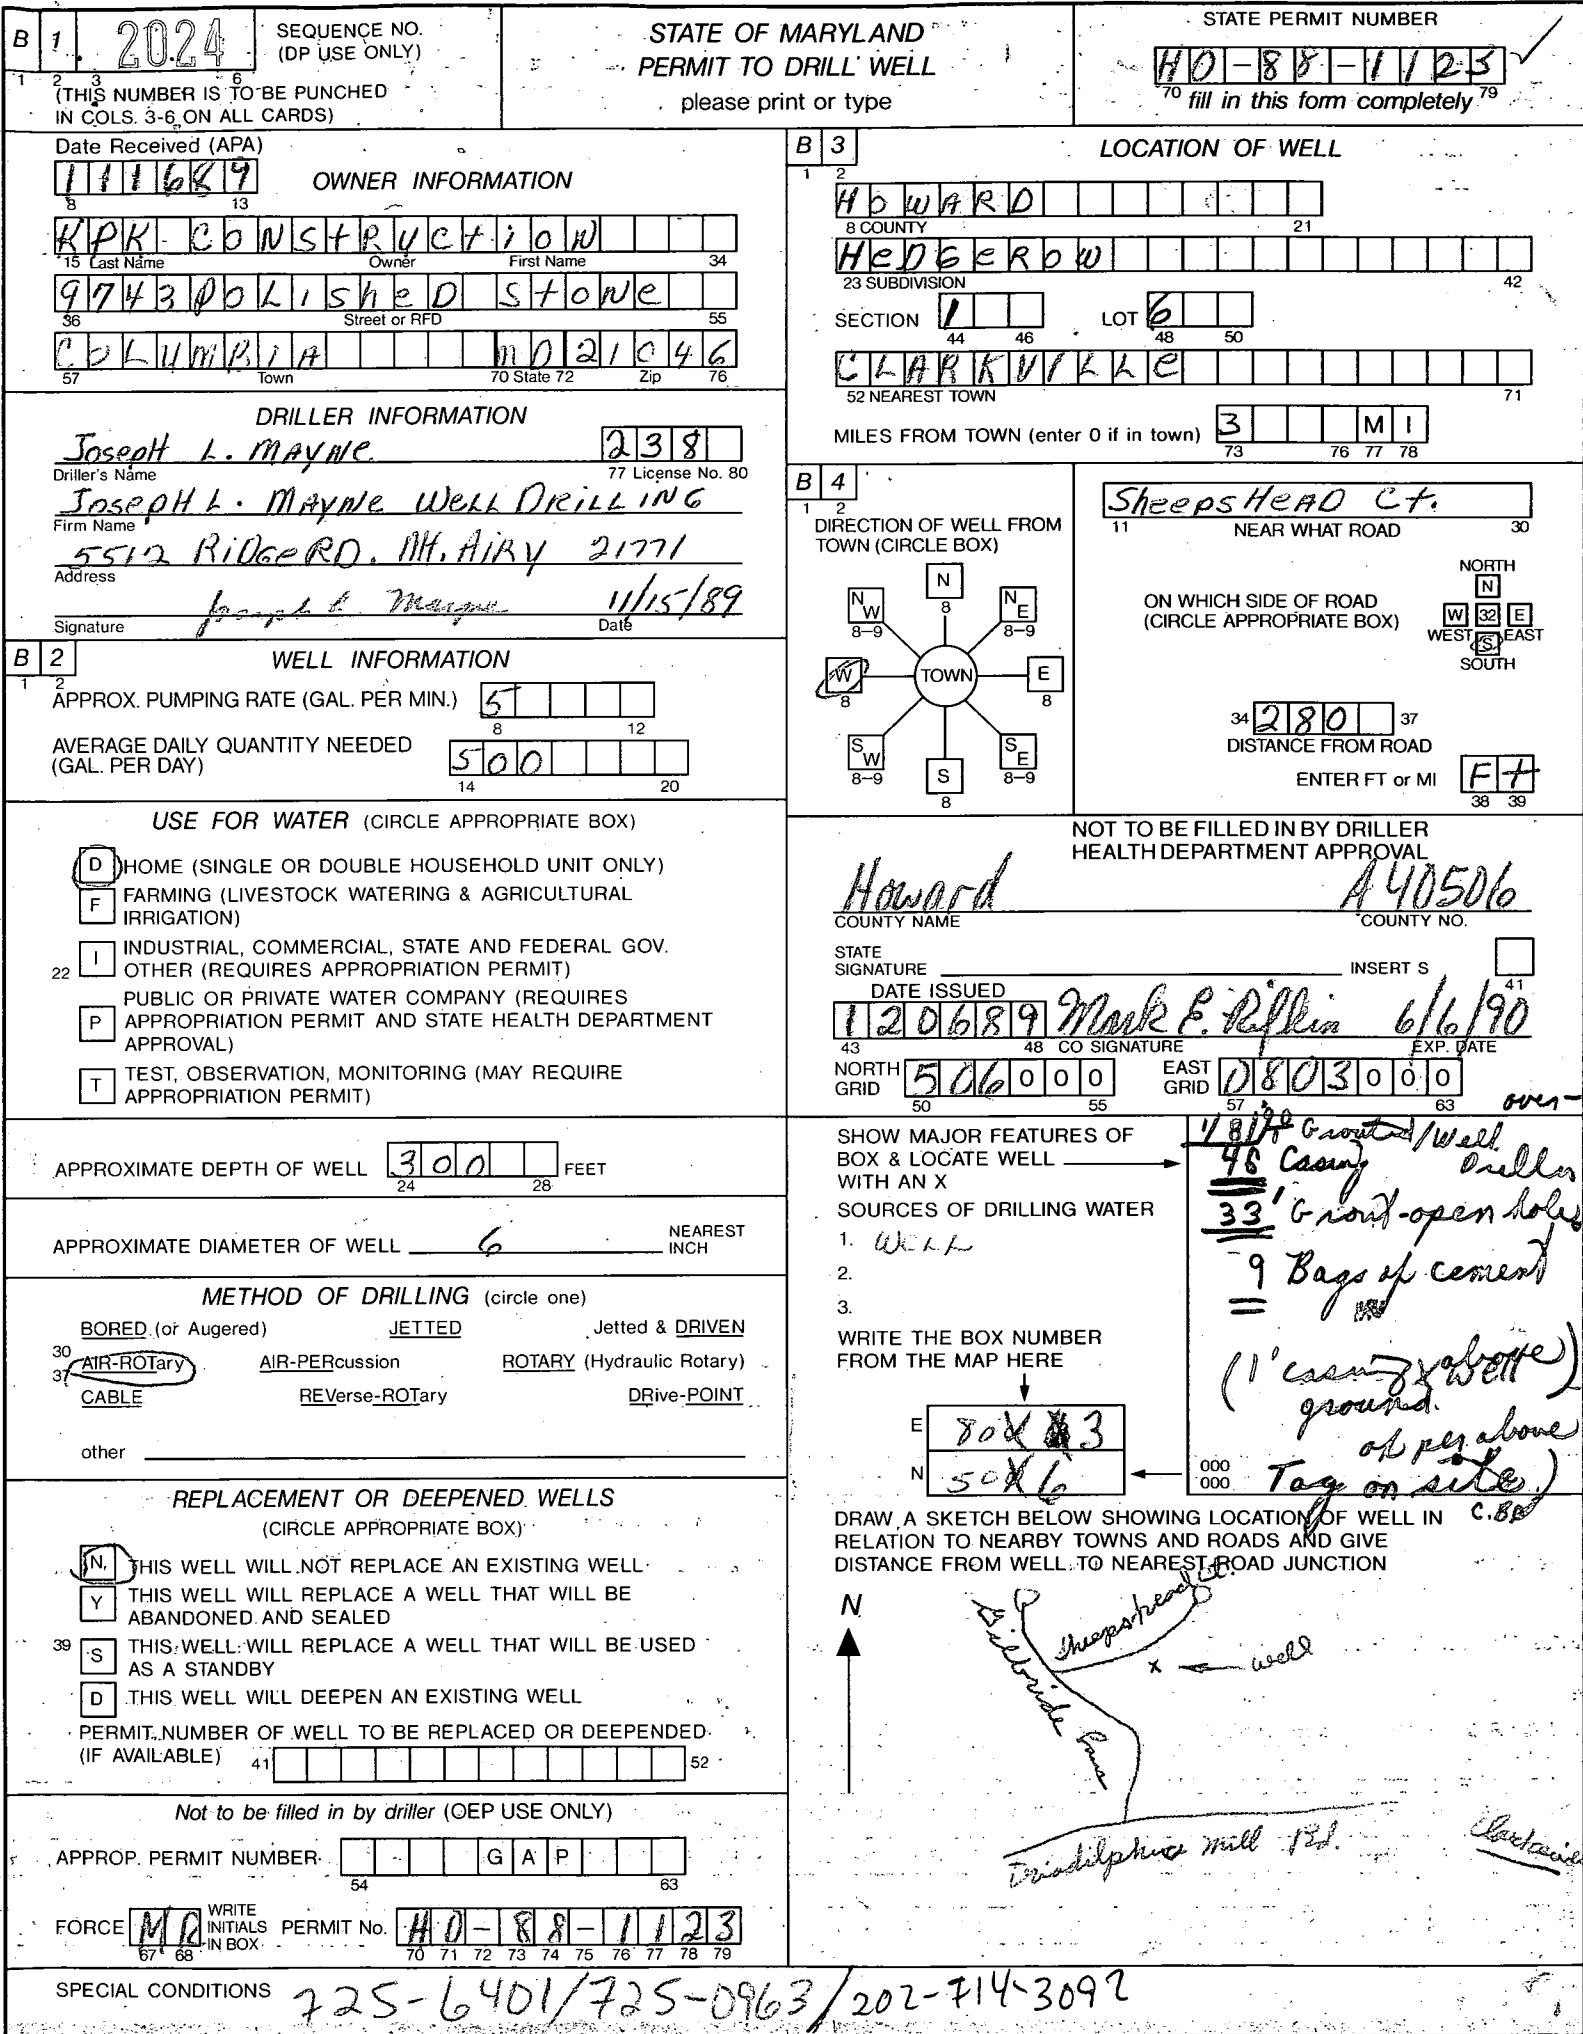 B 1 2024 SEQUENCE NO. (DP USE ONLY)
1 2 3 6
(THIS NUMBER IS TO BE PUNCHED
IN COLS. 3-6 ON ALL CARDS)
STATE OF MARYLAND
PERMIT TO DRILL WELL
please print or type
STATE PERMIT NUMBER
HO-88-1123
70 fill in this form completely 79
Date Received (APA)
111689
8 13
OWNER INFORMATION
KPK CONStRUCtiON
15 Last Name Owner First Name 34
9743 POLisheD StONe
36 Street or RFD 55
COLUMBIA MD 21046
57 Town 70 State 72 Zip 76
DRILLER INFORMATION
Joseph L. MAYNe 238
Driller's Name 77 License No. 80
JosepH L. MAYNe WeLL DRILLING
Firm Name
5512 RiDGe RD. Mt. AiRY 21771
Address
Joseph L. Mayne 11/15/89
Signature Date
B 2 WELL INFORMATION
1 2
APPROX. PUMPING RATE (GAL. PER MIN.) 5
8 12
AVERAGE DAILY QUANTITY NEEDED
(GAL. PER DAY) 500
14 20
USE FOR WATER (CIRCLE APPROPRIATE BOX)
D HOME (SINGLE OR DOUBLE HOUSEHOLD UNIT ONLY)
F FARMING (LIVESTOCK WATERING & AGRICULTURAL
IRRIGATION)
22 I INDUSTRIAL, COMMERCIAL, STATE AND FEDERAL GOV.
OTHER (REQUIRES APPROPRIATION PERMIT)
P PUBLIC OR PRIVATE WATER COMPANY (REQUIRES
APPROPRIATION PERMIT AND STATE HEALTH DEPARTMENT
APPROVAL)
T TEST, OBSERVATION, MONITORING (MAY REQUIRE
APPROPRIATION PERMIT)
APPROXIMATE DEPTH OF WELL 300 FEET
24 28
APPROXIMATE DIAMETER OF WELL 6 NEAREST
INCH
METHOD OF DRILLING (circle one)
BORED (or Augered) JETTED Jetted & DRIVEN
30 AIR-ROTary AIR-PERcussion ROTARY (Hydraulic Rotary)
37 CABLE REVerse-ROTary DRive-POINT
other
REPLACEMENT OR DEEPENED WELLS
(CIRCLE APPROPRIATE BOX)
N THIS WELL WILL NOT REPLACE AN EXISTING WELL
Y THIS WELL WILL REPLACE A WELL THAT WILL BE
ABANDONED AND SEALED
39 S THIS WELL WILL REPLACE A WELL THAT WILL BE USED
AS A STANDBY
D THIS WELL WILL DEEPEN AN EXISTING WELL
PERMIT NUMBER OF WELL TO BE REPLACED OR DEEPENDED
(IF AVAILABLE) 41 52
Not to be filled in by driller (OEP USE ONLY)
APPROP. PERMIT NUMBER GAP
54 63
FORCE MR WRITE INITIALS IN BOX PERMIT No. HO-88-1123
67 68 70 71 72 73 74 75 76 77 78 79
B 3 LOCATION OF WELL
1 2
HOWARD
8 COUNTY 21
HeDGeROW
23 SUBDIVISION 42
SECTION 1 LOT 6
44 46 48 50
CLARKVILLe
52 NEAREST TOWN 71
MILES FROM TOWN (enter 0 if in town) 3 MI
73 76 77 78
B 4
1 2
DIRECTION OF WELL FROM
TOWN (CIRCLE BOX)
N
8
NW NE
8-9 8-9
W TOWN E
8 8
SW SE
8-9 8-9
S
8
SheepsHeAD Ct.
11 NEAR WHAT ROAD 30
ON WHICH SIDE OF ROAD
(CIRCLE APPROPRIATE BOX)
NORTH
N
W 32 E
WEST S EAST
SOUTH
34 280 37
DISTANCE FROM ROAD
ENTER FT or MI Ft
38 39
NOT TO BE FILLED IN BY DRILLER
HEALTH DEPARTMENT APPROVAL
Howard A 40506
COUNTY NAME COUNTY NO.
STATE
SIGNATURE INSERT S
41
DATE ISSUED
120689 Mark E. Rifkin 6/6/90
43 48 CO SIGNATURE EXP. DATE
NORTH GRID 506000 EAST GRID 0803000
50 55 57 63
over-
SHOW MAJOR FEATURES OF
BOX & LOCATE WELL
WITH AN X
Grouted/Well
Casing
33' Grout-open hole
9 Bags of cement
(1' casing above
ground.
above
Tag on site.)
SOURCES OF DRILLING WATER
1. WeLL
2.
3.
WRITE THE BOX NUMBER
FROM THE MAP HERE
E 80 3
N 50 6
000
000
DRAW A SKETCH BELOW SHOWING LOCATION OF WELL IN
RELATION TO NEARBY TOWNS AND ROADS AND GIVE
DISTANCE FROM WELL TO NEAREST ROAD JUNCTION
N
Sheepshead Ct.
x well
Triadelphia Mill Rd.
SPECIAL CONDITIONS 725-6401/725-0963/202-714-3092